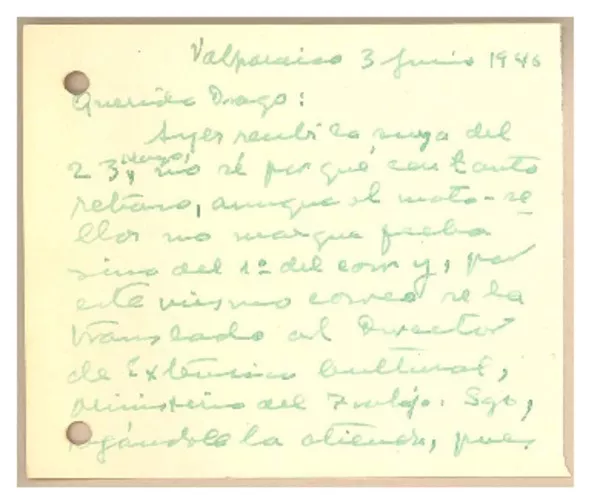 Valparaiso 3 Junio 1946
Querido Drago:
Ayer recibí la suya del
23 Mayo, no sé por qué con tanto
retraso, aunque el mata-se
llos no marque fecha
sino del 1º del corr y, por
este mismo correo se la
traslado al Director
de Extensión Cultural,
Ministerio del Trabajo. Sgo,
rogándole la atienda, pues